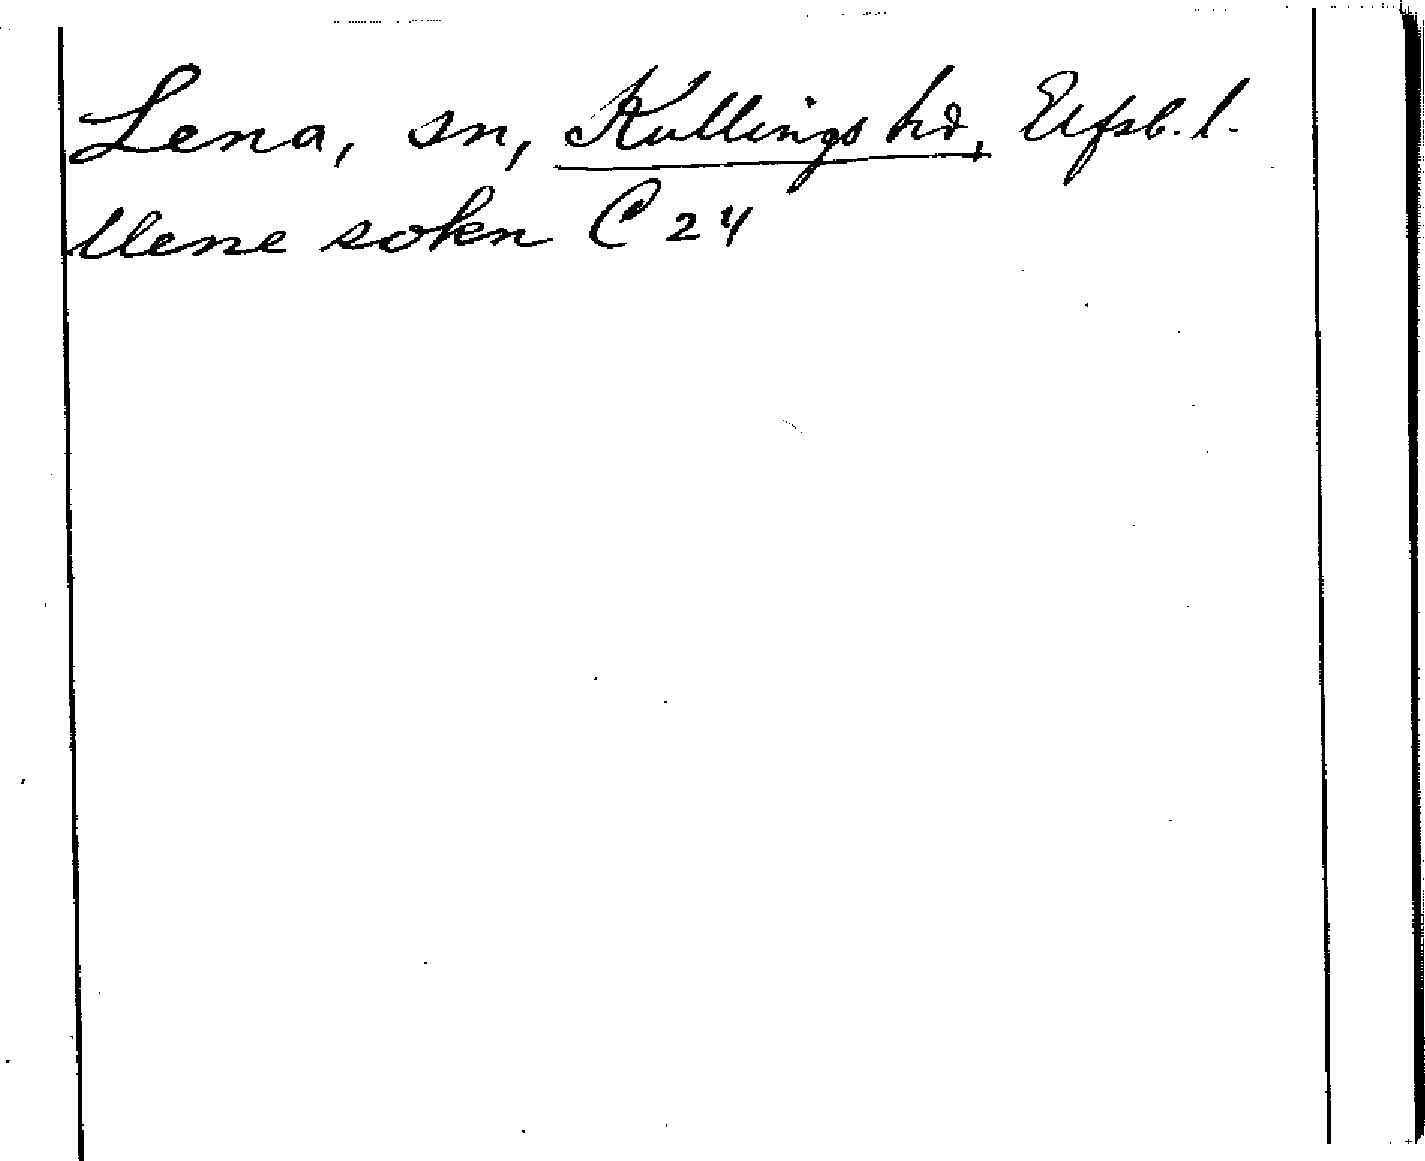 Lena, sn, Kullings hd, Elfsb. l.
Llene sokn C 24